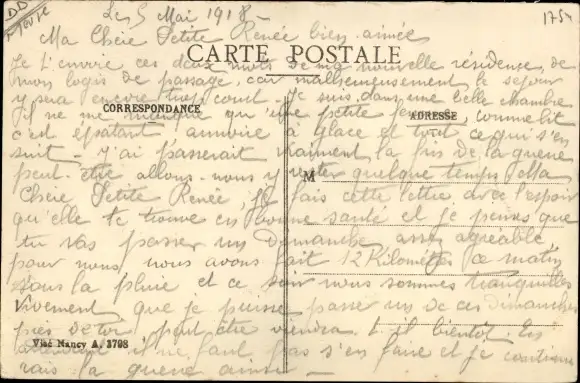 Le 5 Mai 1918 -
175
Ma Chère Petite Renée bien aimée
CARTE POSTALE
Je t'envoie ces deux mots de ma nouvelle résidence, de
mon logis de passage, car malheureusement le séjour
y sera encore trop court - Je suis dans une belle chambre
CORRESPONDANCE
ADRESSE
il ne me manque qu'une petite femme, comme lit
c'est épatant armoire à glace et tout ce qui s'en
suit - j'y passerait vraiment la fin de la guerre
M
peut-être allons-nous y rester quelque temps Ma
Chère Petite Renée, je fais cette lettre avec l'espoir
qu'elle te trouve en bonne santé et je pense que
tu vas passer un Dimanche assez agréable,
pour nous nous avons fait 12 Kilomètres ce matin
sous la pluie et ce soir nous sommes tranquilles
Vivement que je puisse passer un de ces Dimanches
près de toi peut être viendra t-il bientôt. En
Visé Nancy A. 3798
attendant il ne faut pas s'en faire et je continue
la guerre ainsi -